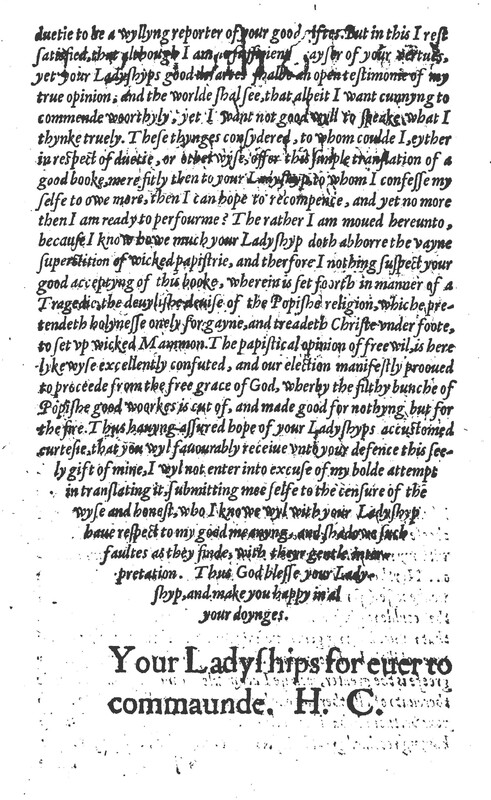 duetie to be a wyllyng reporter of your good giftes. But in this I rest
satisfied, that although I am of your vertues,
yet your Ladyshyps good shalbe an open testimonie of my
true opinion: and the worlde shal see, that albeit I want cunnyng to
commende woorthyly, yet I want not good wyll to speake what I
thynke truely. These thynges consydered, to whom coulde I, eyther
in respect of duetie, or otherwyse, offer this simple translation of a
good booke, more fitly then to your Ladyshyp, to whom I confesse my
selfe to owe more, then I can hope to recompence, and yet no more
then I am ready to perfourme? The rather I am moued hereunto,
because I know howe much your Ladyshyp doth abhorre the vayne
superstition of wicked papistrie, and therfore I nothing suspect your
good acceptyng of this booke, wherein is set foorth in manner of a
Tragedie, the deuylishe deuise of the Popishe religion, whiche pre-
tendeth holynesse onely for gayne, and treadeth Christe vnder foote,
to set vp wicked Mammon. The papistical opinion of free wil, is here
lykewyse excellently confuted, and our election manifestly prooued
to proceede from the free grace of God, wherby the filthy bunche of
Popishe good woorkes is cut of, and made good for nothyng but for
the fire. Thus hauyng assured hope of your Ladyshyps accustomed
curtesie, that you wyl fauourably receiue vnto your defence this see-
ly gift of mine, I wyl not enter into excuse of my bolde attempt
in translating it, submitting mee selfe to the censure of the
wyse and honest, who I knowe wyl with your Ladyshyp
haue respect to my good meanyng, and shadowe such
faultes as they finde, with their gentle inter-
pretation. Thus God blesse your Lady-
shyp, and make you happy in al
your doynges.
Your Ladyships for euer to
commaunde. H. C.